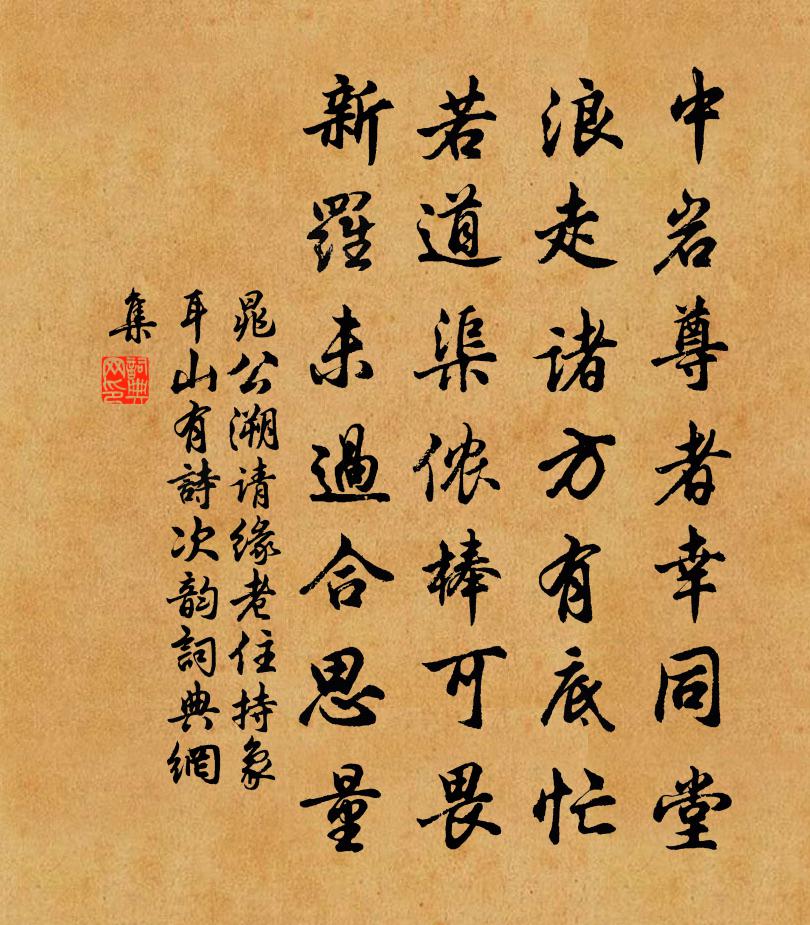 中岩尊者幸同堂
浪走诸方有底忙
若道渠侬棒可畏
新羅未過合思量
晁公溯请缘老住持象
耳山有詩次韵詞典網
集
詞典网印